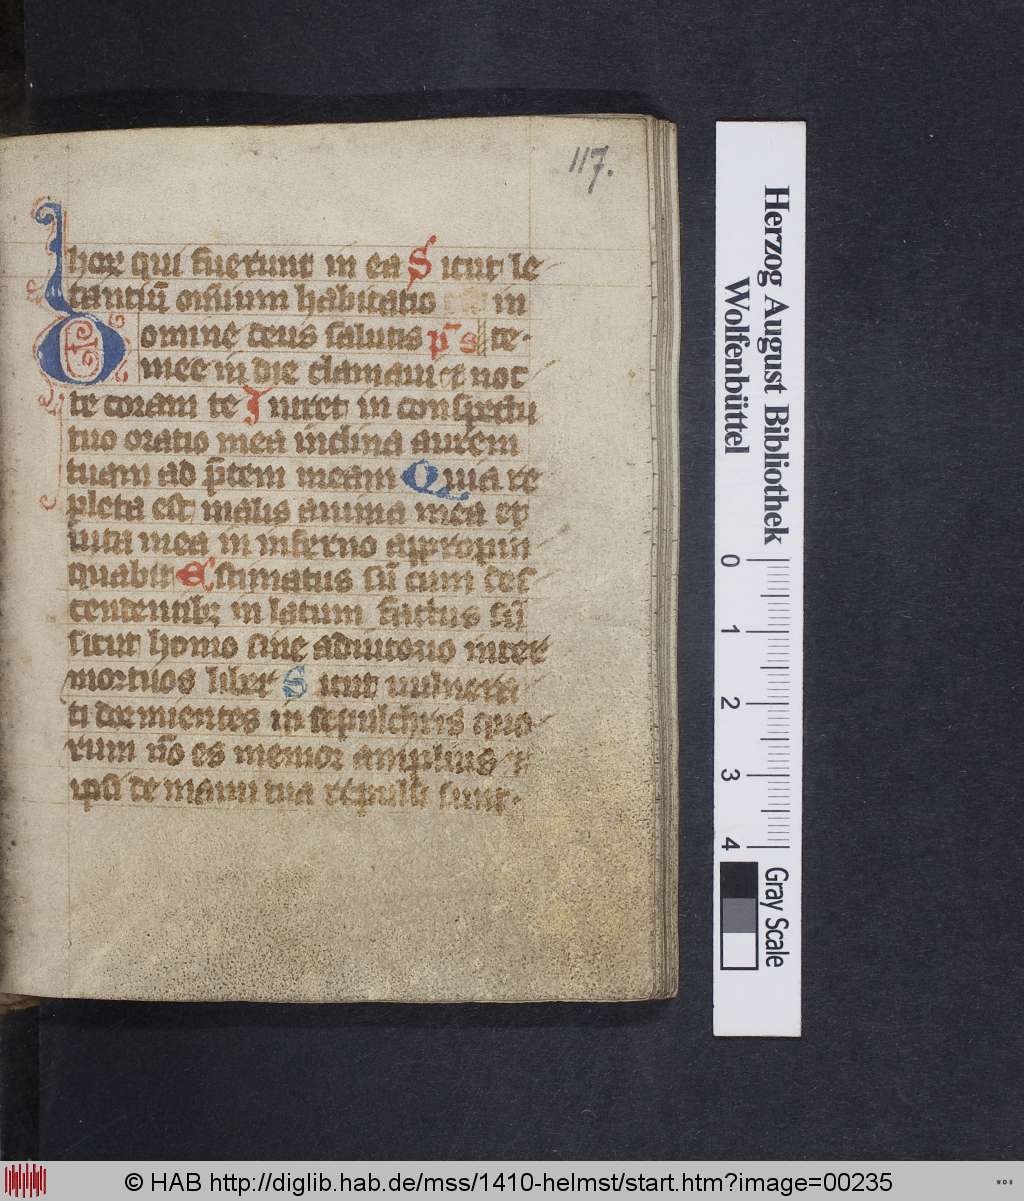 117.
hor qui fuerunt in ea Sicut le
tantiū omnium habitatio in
Domine deus salutis ps te
mee in die clamaui et noc
te coram te Intret in conspectu
tuo oratio mea inclina aurem
tuam ad p̄cem meam Quia re
pleta est malis anima mea et
uita mea in inferno appropin
quabit Estimatus sū cum des
cendentibꝫ in lacum factus sū
sicut homo sine adiutorio inter
mortuos liber Sicut uulnera
ti dormientes in sepulchris quo
rum nō es memor amplius
ipsi de manu tua repulsi sunt.
Herzog August Bibliothek
Wolfenbüttel
0 1 2 3 4
Gray Scale
© HAB http://diglib.hab.de/mss/1410-helmst/start.htm?image=00235